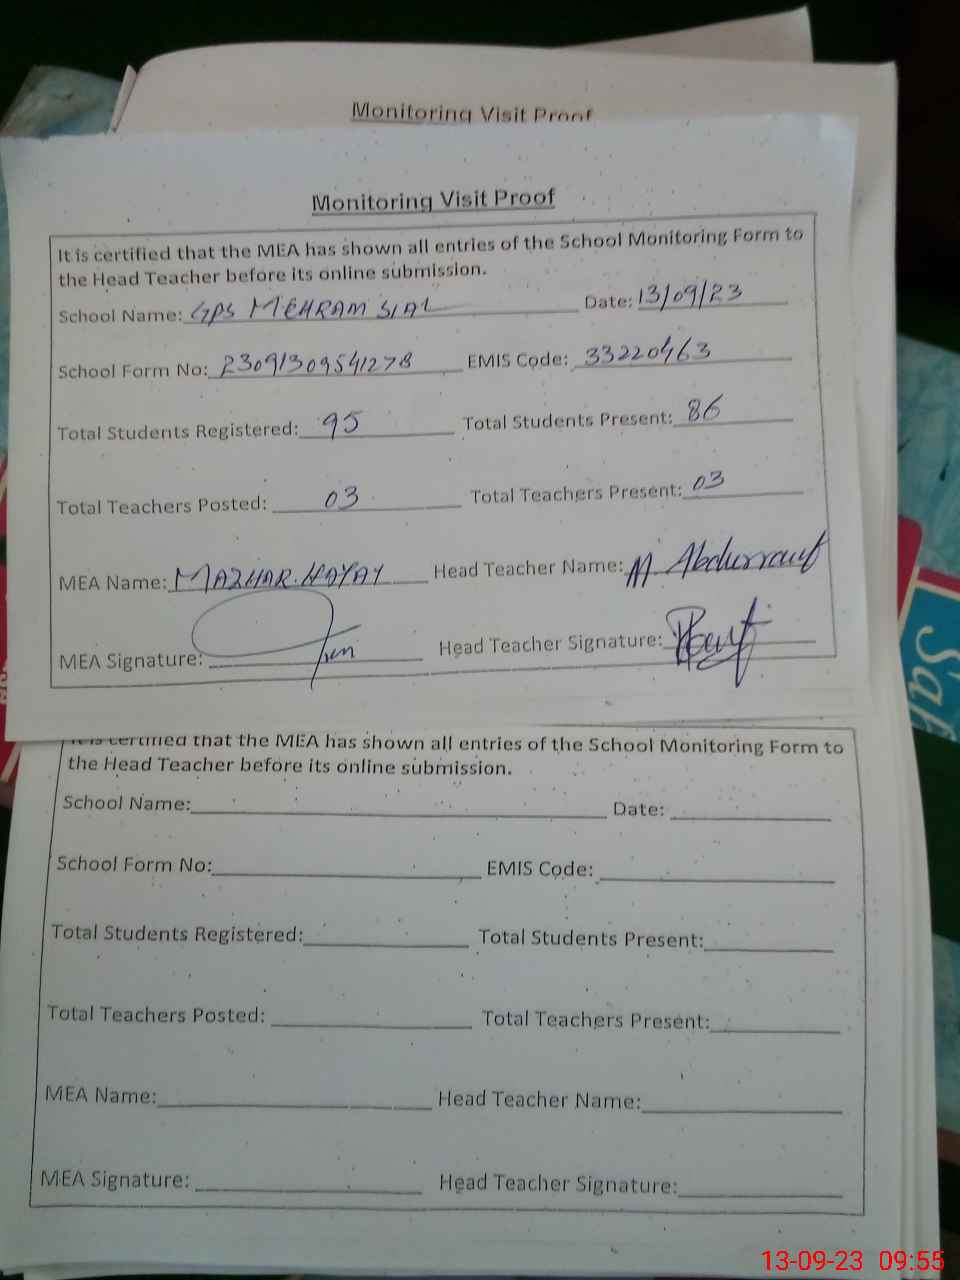 Monitoring Visit Proof
Monitoring Visit Proof
It is certified that the MEA has shown all entries of the School Monitoring Form to
the Head Teacher before its online submission.
School Name: GPS MEHRAM SIAL Date: 13/09/23
School Form No: 23091309541278 EMIS Code: 33220463
Total Students Registered: 95 Total Students Present: 86
Total Teachers Posted: 03 Total Teachers Present: 03
MEA Name: MAZHAR HAYAT Head Teacher Name: M. Abdurrauf
MEA Signature: Head Teacher Signature: Rauf
It is certified that the MEA has shown all entries of the School Monitoring Form to
the Head Teacher before its online submission.
School Name: Date:
School Form No: EMIS Code:
Total Students Registered: Total Students Present:
Total Teachers Posted: Total Teachers Present:
MEA Name: Head Teacher Name:
MEA Signature: Head Teacher Signature:
13-09-23 09:55